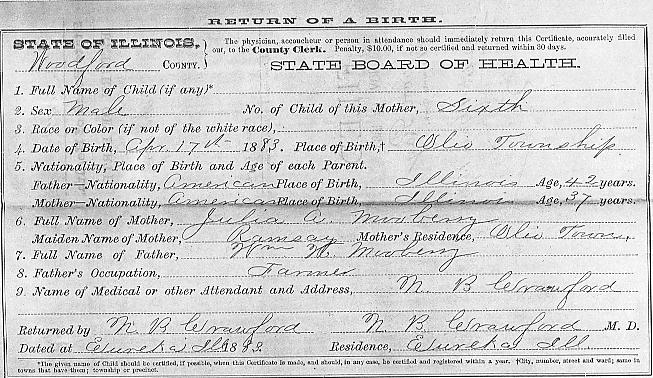 RETURN OF A BIRTH.
STATE OF ILLINOIS,
Woodford COUNTY.
The physician, accoucheur or person in attendance should immediately return this Certificate, accurately filled
out, to the County Clerk. Penalty, $10.00, if not so certified and returned within 30 days.
STATE BOARD OF HEALTH.
1. Full Name of Child (if any)*
2. Sex Male No. of Child of this Mother, Sixth
3. Race or Color (if not of the white race),
4. Date of Birth, Apr. 17th 1883. Place of Birth,† Olio Township
5. Nationality, Place of Birth and Age of each Parent.
Father—Nationality, American Place of Birth, Illinois Age, 42 years.
Mother—Nationality, American Place of Birth, Illinois Age, 37 years.
6. Full Name of Mother, Julia A. Mooberry
Maiden Name of Mother, Ramsay Mother's Residence, Olio Town,
7. Full Name of Father, Wm H. Mooberry
8. Father's Occupation, Farmer
9. Name of Medical or other Attendant and Address, N B Crawford
Returned by N. B. Crawford N. B. Crawford M. D.
Dated at Eureka Ill 1883. Residence, Eureka Ill.
*The given name of Child should be certified, if possible, when this Certificate is made, and should, in any case, be certified and registered within a year. †City, number, street and ward; same in
towns that have them; township or precinct.